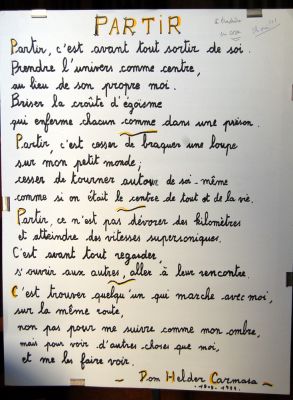 PARTIR
Partir, c'est avant tout sortir de soi.
Prendre l'univers comme centre,
au lieu de son propre moi.
Briser la croûte d'égoïsme
qui enferme chacun comme dans une prison.
Partir, c'est cesser de braquer une loupe
sur mon petit monde;
cesser de tourner autour de soi-même
comme si on était le centre de tout et de la vie.
Partir, ce n'est pas dévorer des kilomètres
et atteindre des vitesses supersoniques.
C'est avant tout regarder,
s'ouvrir aux autres, aller à leur rencontre.
C'est trouver quelqu'un qui marche avec moi,
sur la même route,
non pas pour me suivre comme mon ombre,
mais pour voir d'autres choses que moi,
et me les faire voir.
- Dom Helder Camara -